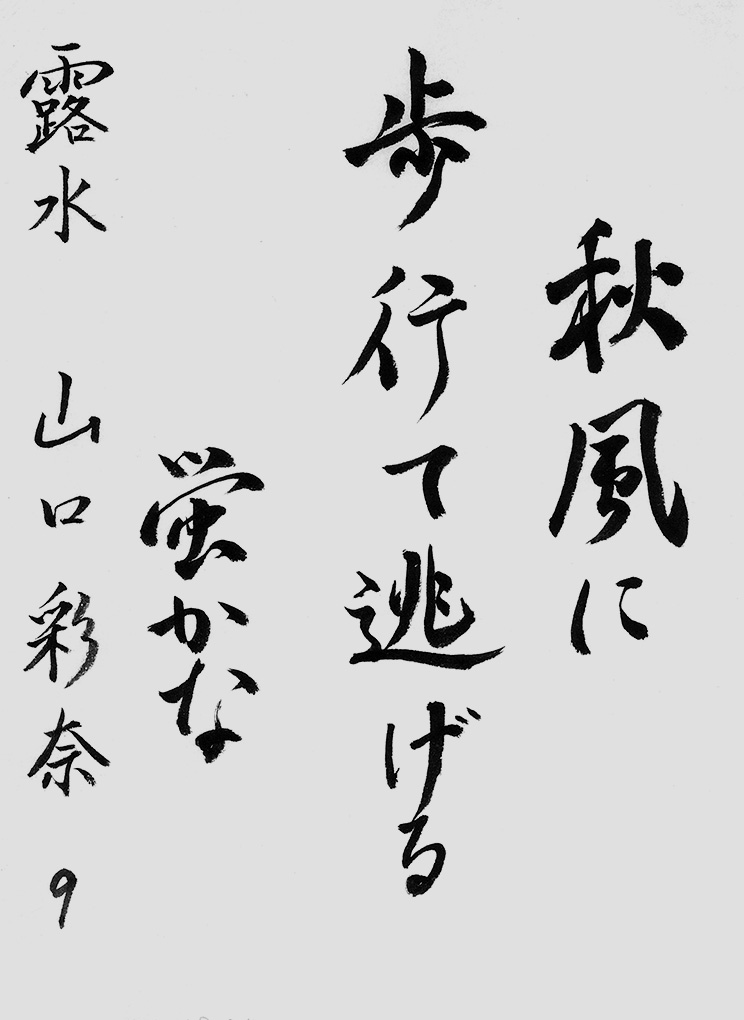 秋風に
歩行て逃げる
蛍かな
露水 山口彩奈 9